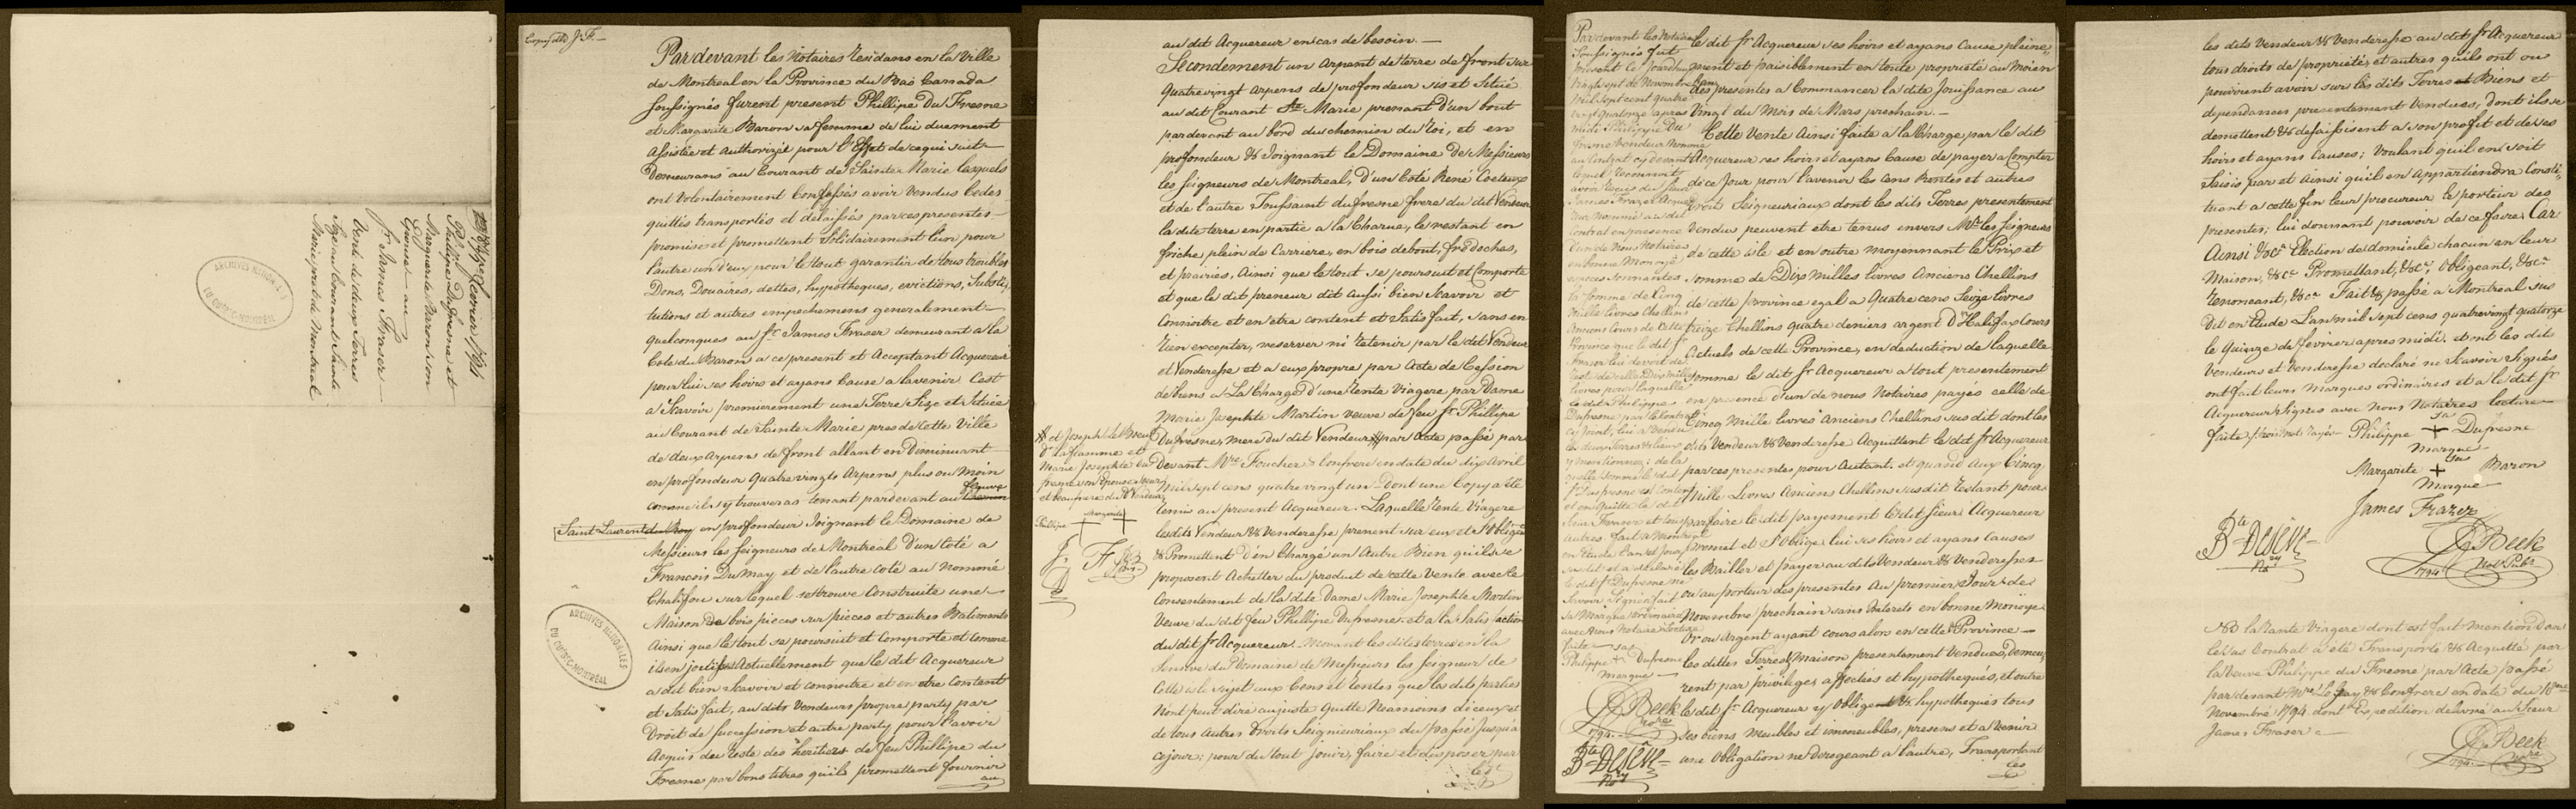 15 Fevrier 1794
Philipe Dufresne et
Marguerite Baron son
Epouse
au
Sr. James Fraser
Vente de deux Terres
size au Courant Sainte
Marie près de Montreal
ARCHIVES NATIONALES
DU QUÉBEC-MONTRÉAL
J. F. —
Pardevant les Notaires Residans en la Ville
de Montreal en la Province du Bas Canada
soussignés furent present Phillipe Du Fresne
et Margarite Baron sa femme de lui duement
assistée et authorizée pour l'Effet de ce qui suit
Demeurans au Courant de Sainte Marie lesquels
ont Volontairement Confessés avoir Vendus Cedes
quittés transportés et délaissés par ces presentes
promise et promettent Solidairement l'un pour
l'autre un d'eux pour le tout garantir de tous troubles
Dons, Douaires, dettes, hypotheques, evictions, Substi,
tutions et autres empechemens generalement
quelconques au Sr. James Fraser demeurant a la
Cote du Baron a ce present et Acceptant Acquereur
pour lui ses hoirs et ayans Cause a l'avenir C'est
a Scavoir premierement une Terre Size et Située
au Courant de Sainte Marie pres de Cette Ville
de deux Arpens de front allant en Diminuant
en profondeur Quatrevingts Arpens plus ou Moin
comme il s'y trouveras tenant pardevant au fleuve
Saint Laurent en profondeur Joignant le Domaine de
Messieurs les Seigneurs de Montreal D'un Coté a
Francois Dumay et de l'autre coté au Nommé
Chalifou sur lequel se trouve Construite une
Maison de bois pieces sur pieces et autres Batiments
Ainsi que le tout se poursuit et Comporte et comme
ils en Actuellement que le dit Acquereur
a dit bien Scavoir et connoitre et en etre Content
et Satisfait, au dits Vendeurs propre party par
Droit de Succession et autre party pour l'avoir
Acquis du reste des heritiers de feu Phillipe du
Fresne par bons titres qu'ils promettent fournir
au
ARCHIVES NATIONALES
DU QUÉBEC-MONTRÉAL
au dit Acquereur en cas de besoin. —
Secondement un Arpent de terre de front sur
Quatrevingt arpens de profondeur sis et Situé
au dit Courant Ste. Marie prenant d'un bout
pardevant au bord du chemin du Roi, et en
profondeur & Joignant le Domaine de Messieurs
les seigneurs de Montreal, d'un Coté René
et de l'autre Toussaint dufresne frere du dit Vendeur
la dite terre en partie a la Charue, le restant en
friche plein de Carriere, en bois debout, fredoches,
et prairies, Ainsi que le tout se poursuit et Comporte
et que le dit preneur dit aussi bien Scavoir et
Connoitre et en etre content et Satisfait, sans en
Rien excepter, reserver ni Retenir par le dit Vendeur
et Venderesse et a eux propre par Acte de Cession
de biens a La Charge d'une Rente Viagere, par Dame
Marie Josephte Martin veuve de feu Sr. Phillipe
Dufresne, mere du dit Vendeur par Acte passé par
Devant Mtre. Foucher & Confrere en date du dix Avril
Mil sept cens quatrevingt un dont une Copy a été
remis au present Acquereur. Laquelle rente Viagere
lesdits Vendeur & Venderesse prenent sur eux et S'obligent
& Promettent d'en Chargé un Autre Bien qu'ils se
proposent Achetter du produit de cette Vente avec le
Consentement de la dite Dame Marie Josephte Martin
Veuve du dit feu Phillipe Dufresne et a la Satisfaction
du dit Sr. Acquereur. Mouvant les dites terres en la
Censive du Domaine de Messieurs les Seigneur de
Cette isle sujet aux Cens et rentes que les dits parties
N'ont peut dire au juste Quitte Neamoins d'iceux et
de tous autres Droits Seigneuriaux du passé Jusqu'a
ce jour; pour du tout Jouir, faire et disposer par
et Joseph
Marie Josephte du
fresne son Epouse
et beaufrere du dt Vendeur
Phillipe + Margarite +
J. F.
Pardevant les Notaires
soussignés fut
present le Jourdhui
vingt sept de Novembre
Mil sept cent quatre
vingt quatorze apres
midi Philippe Du
fresne vendeur nommé
au Contrat cy devant
lequel reconnoit
avoir recus du Sieur
James Frazer Acque
reur nommé au dit
Contrat en presence
d'un de nous Notaires
en bonne Monoye
especes sonnantes
la Somme de Cinq
mille livres Chelins
Anciens Cours de Cette
Province que le dit Sr.
Frazer lui devoit de
reste de celle Dix mille
livres pour laquelle
le dit Philippe
Dufresne par le Contrat
cy joint, lui a Vendu
les deux Terres & lieux
y mentionnes; de la
quelle Somme le dit
Sr. Dufresne est content
et en Quitte le dit
Sieur Frazer et tous
autres. fait a Montreal
en Etude l'an et Jour
susdit et a déclaré
le dit Sr. Dufresne ne
Savoir Signer a fait
sa Marque ordinaire
avec Nous Notaires lecture
faite. sa
Philippe + Dufresne
Marque
Beek
Nore.
1794
Bte. Deseve
Nory
le dit Sr. Acquereur ses hoirs et ayans Cause pleine,
ment et paisiblement en toute propriété au Moien
des presentes a Commancer la dite Jouissance au
Vingt du Mois de Mars prochain. —
Cette Vente Ainsi faite a la Charge par le dit
Acquereur ses hoirs et ayans Cause de payer a Compter
de ce Jour pour l'avenir les Cens Rentes et autres
Droits Seigneuriaux dont les dits Terres presentement
Vendus peuvent etre tenus envers Mrs. les Seigneurs
de cette isle et en outre moyennant le Prix et
somme de Dix Milles livres Anciens Chellins
de cette province egal a Quatre cens Seize livres
Treize Chellins Quatre deniers argent D'Halifax Cours
Actuels de cette Province, en deduction de laquelle
Somme le dit Sr. Acquereur a tout presentement
en presence d'un de nous Notaires payés celle de
Cincq Mille livres Anciens Chellins susdit dont les
dits Vendeur & Venderesse Acquittant le dit Sr. Acquereur
par ces presentes pour Autant. et quand aux Cincq
Mille Livres Anciens Chellins susdit restant pour
parfaire le dit payement le dit Sieur Acquereur
promet et S'oblige lui ses hoirs et ayans Causes
les Bailler et payer au dits Vendeur & Venderesses
ou au porteur des presentes au premier Jour de
Novembre prochain sans Interets en bonne Monoye
Or ou Argent ayant cours alors en cette Province —
les dittes Terres & Maison presentement vendues, demeu,
rent par privileges affectées et hypothequés, et outre
le dit Sr. Acquereur y Obligent & hypotheques tous
Ses biens meubles et immeubles, presens et a Venir
une Obligation ne derogeant a l'autre, Transportant
les
les dits Vendeur & Venderesse au dit Sr. Acquereur
tous droits de propriétés et autres qu'ils ont ou
pouvoient avoir sur les dits Terres et Biens et
dependances presentement Vendues, dont ils se
demettent & desaisissent a son profit et de ses
hoirs et ayans Causes; Voulant qu'il en soit
Saisis par et Ainsi qu'il en Appartiendra Consti,
tuant a cette fin leur procureur le porteur des
presentes; lui donnant pouvoir de ce faire, Car
Ainsi &ca. Election de domicile chacun en leur
Maison, &ca. Promettant, &ca, Obligeant, &ca.
renonceant, &ca. Fait & passé a Montreal sus
Dit en Etude L'an mil sept cens quatrevingt quatorze
le Quinze de fevrier apres midi. et ont les dits
Vendeurs et Venderesse declaré ne Scavoir Signés
ont fait leurs Marques ordinaires et a le dit Sr.
Acquereur Signés avec Nous Notaires lecture
faite. trois Mot Rayés sa
Philippe + Dufresne
Marque
sa
Margarite + Baron
Marque
James Frazer
Bte. Deseve
Nory
Beek
Not. Pub.
1794
NB la rente Viagere dont est fait mention dans
le Contrat a été Transporté & Acquitté par
la veuve Philippe du Fresne par Acte passé
pardevant Mtre. & Confrere en date du 18me
Novembre 1794 dont Expedition delivré au Sieur
James Fraser
Beek
Nore
1794